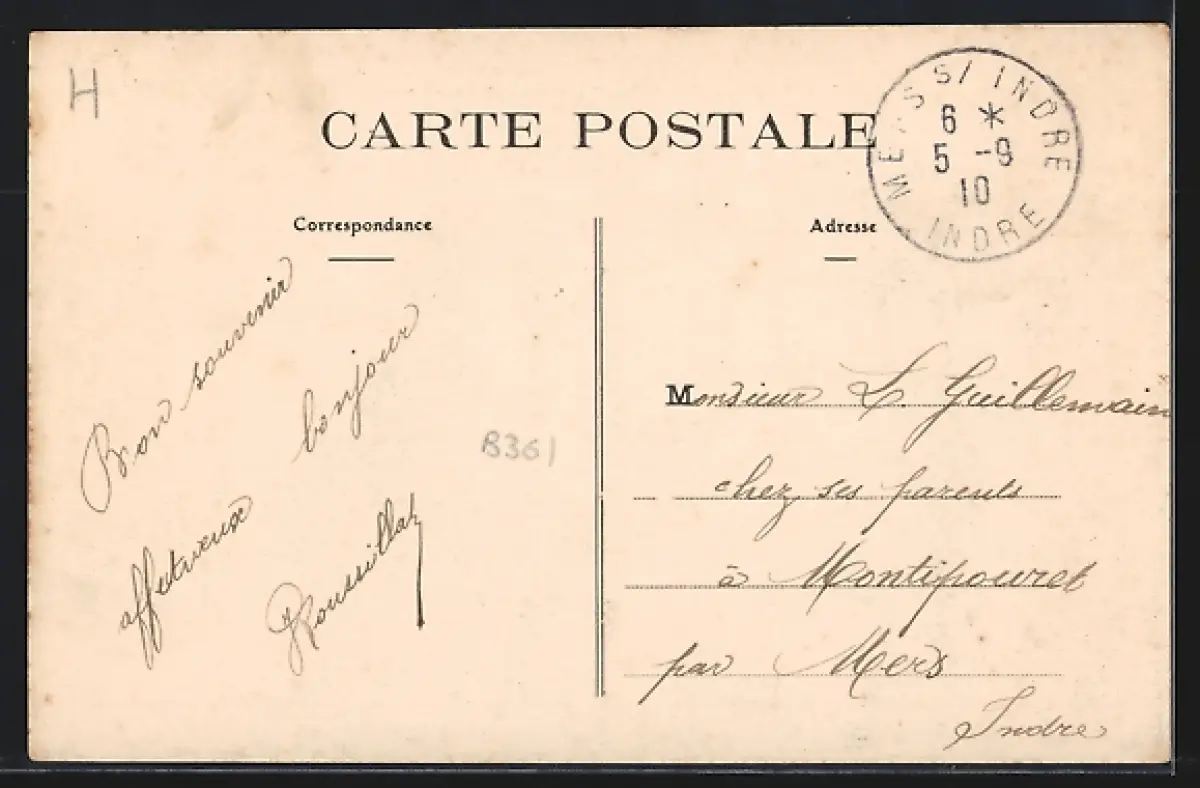 H
CARTE POSTALE
MERS S/ INDRE
6 *
5 -9
10
INDRE
Correspondance
Adresse
Bon souvenir
affectueux bonjour
Roussillat
B361
Monsieur L. Guillemain
chez ses parents
à Montipouret
par Mers
Indre